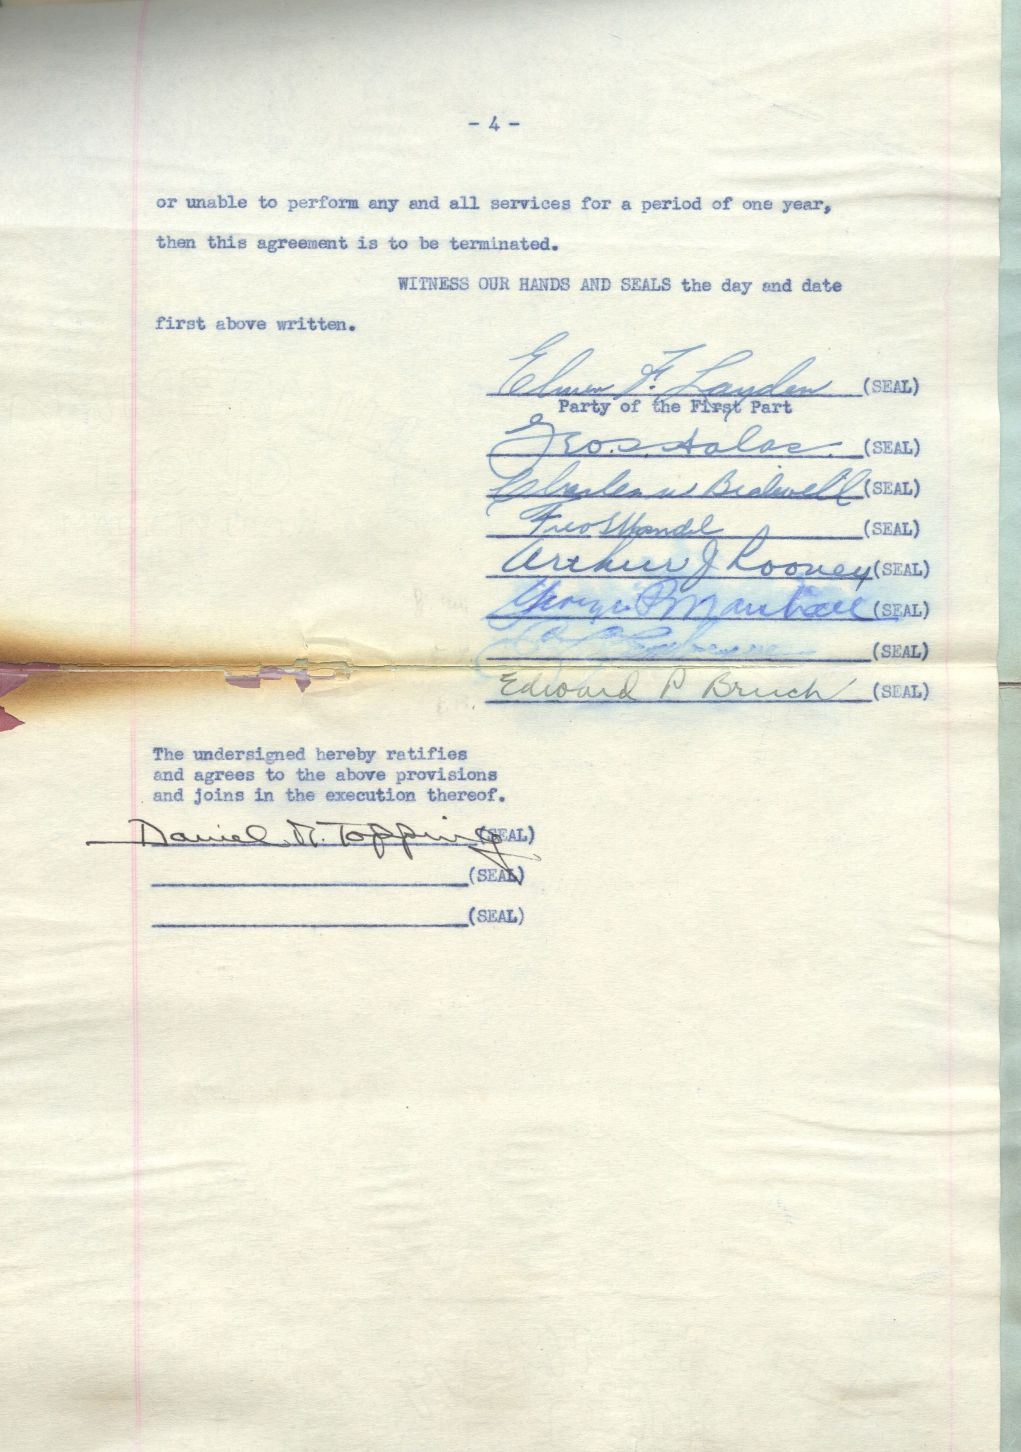 - 4 -
or unable to perform any and all services for a period of one year,
then this agreement is to be terminated.
WITNESS OUR HANDS AND SEALS the day and date
first above written.
Elmer F. Layden (SEAL)
Party of the First Part
Geo. S. Halas (SEAL)
Charles W Bidwill (SEAL)
Fred Mandel (SEAL)
Arthur J Rooney (SEAL)
George P Marshall (SEAL)
(SEAL)
Edward P Bruch (SEAL)
The undersigned hereby ratifies
and agrees to the above provisions
and joins in the execution thereof.
Daniel R. Topping (SEAL)
(SEAL)
(SEAL)